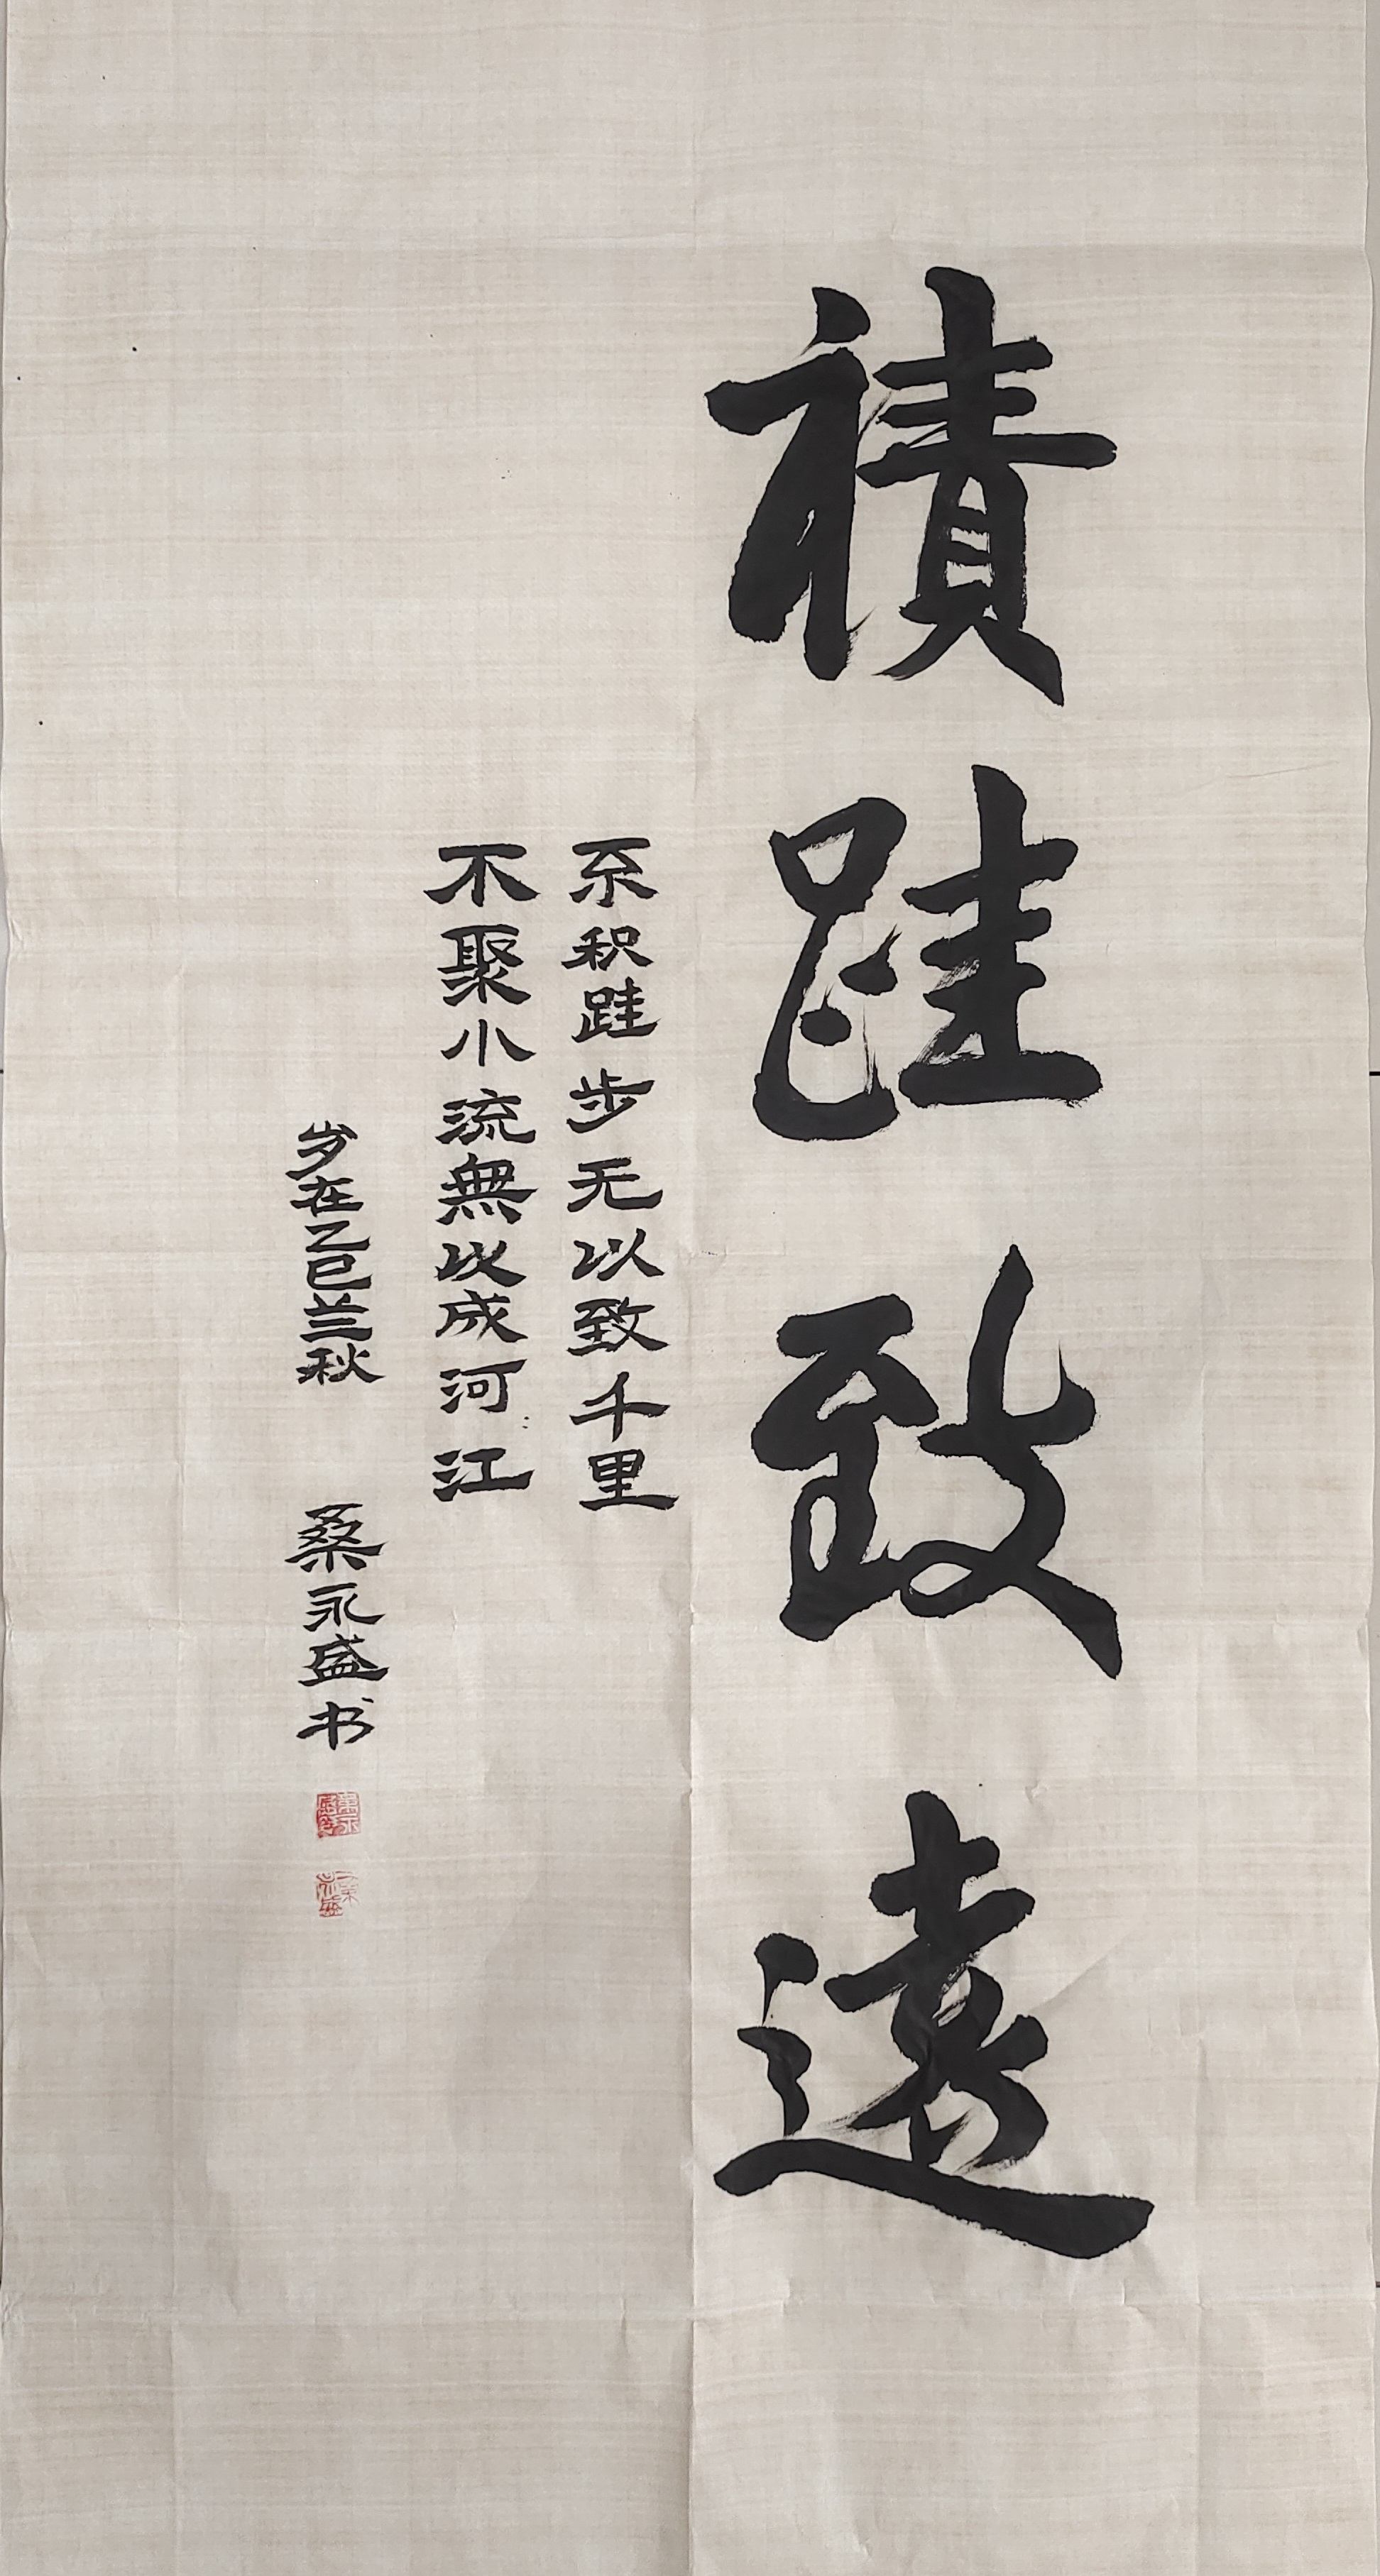 積跬致遠
不积跬步无以致千里
不聚小流無以成河江
岁在乙巳兰秋 桑永盛书